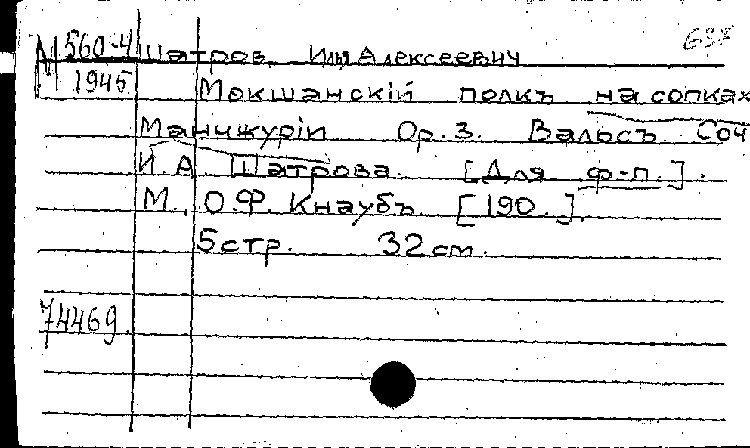 М 560-4
1945
Шатров, Илья Алексеевич
Мокшанскій полкъ на сопках
Манчжуріи Ор. 3. Вальсъ Соч
И. А Шатрова. [Для ф-п.].
М., О.Ф. Кнаубъ [190.].
5 стр. 32 см.
74469